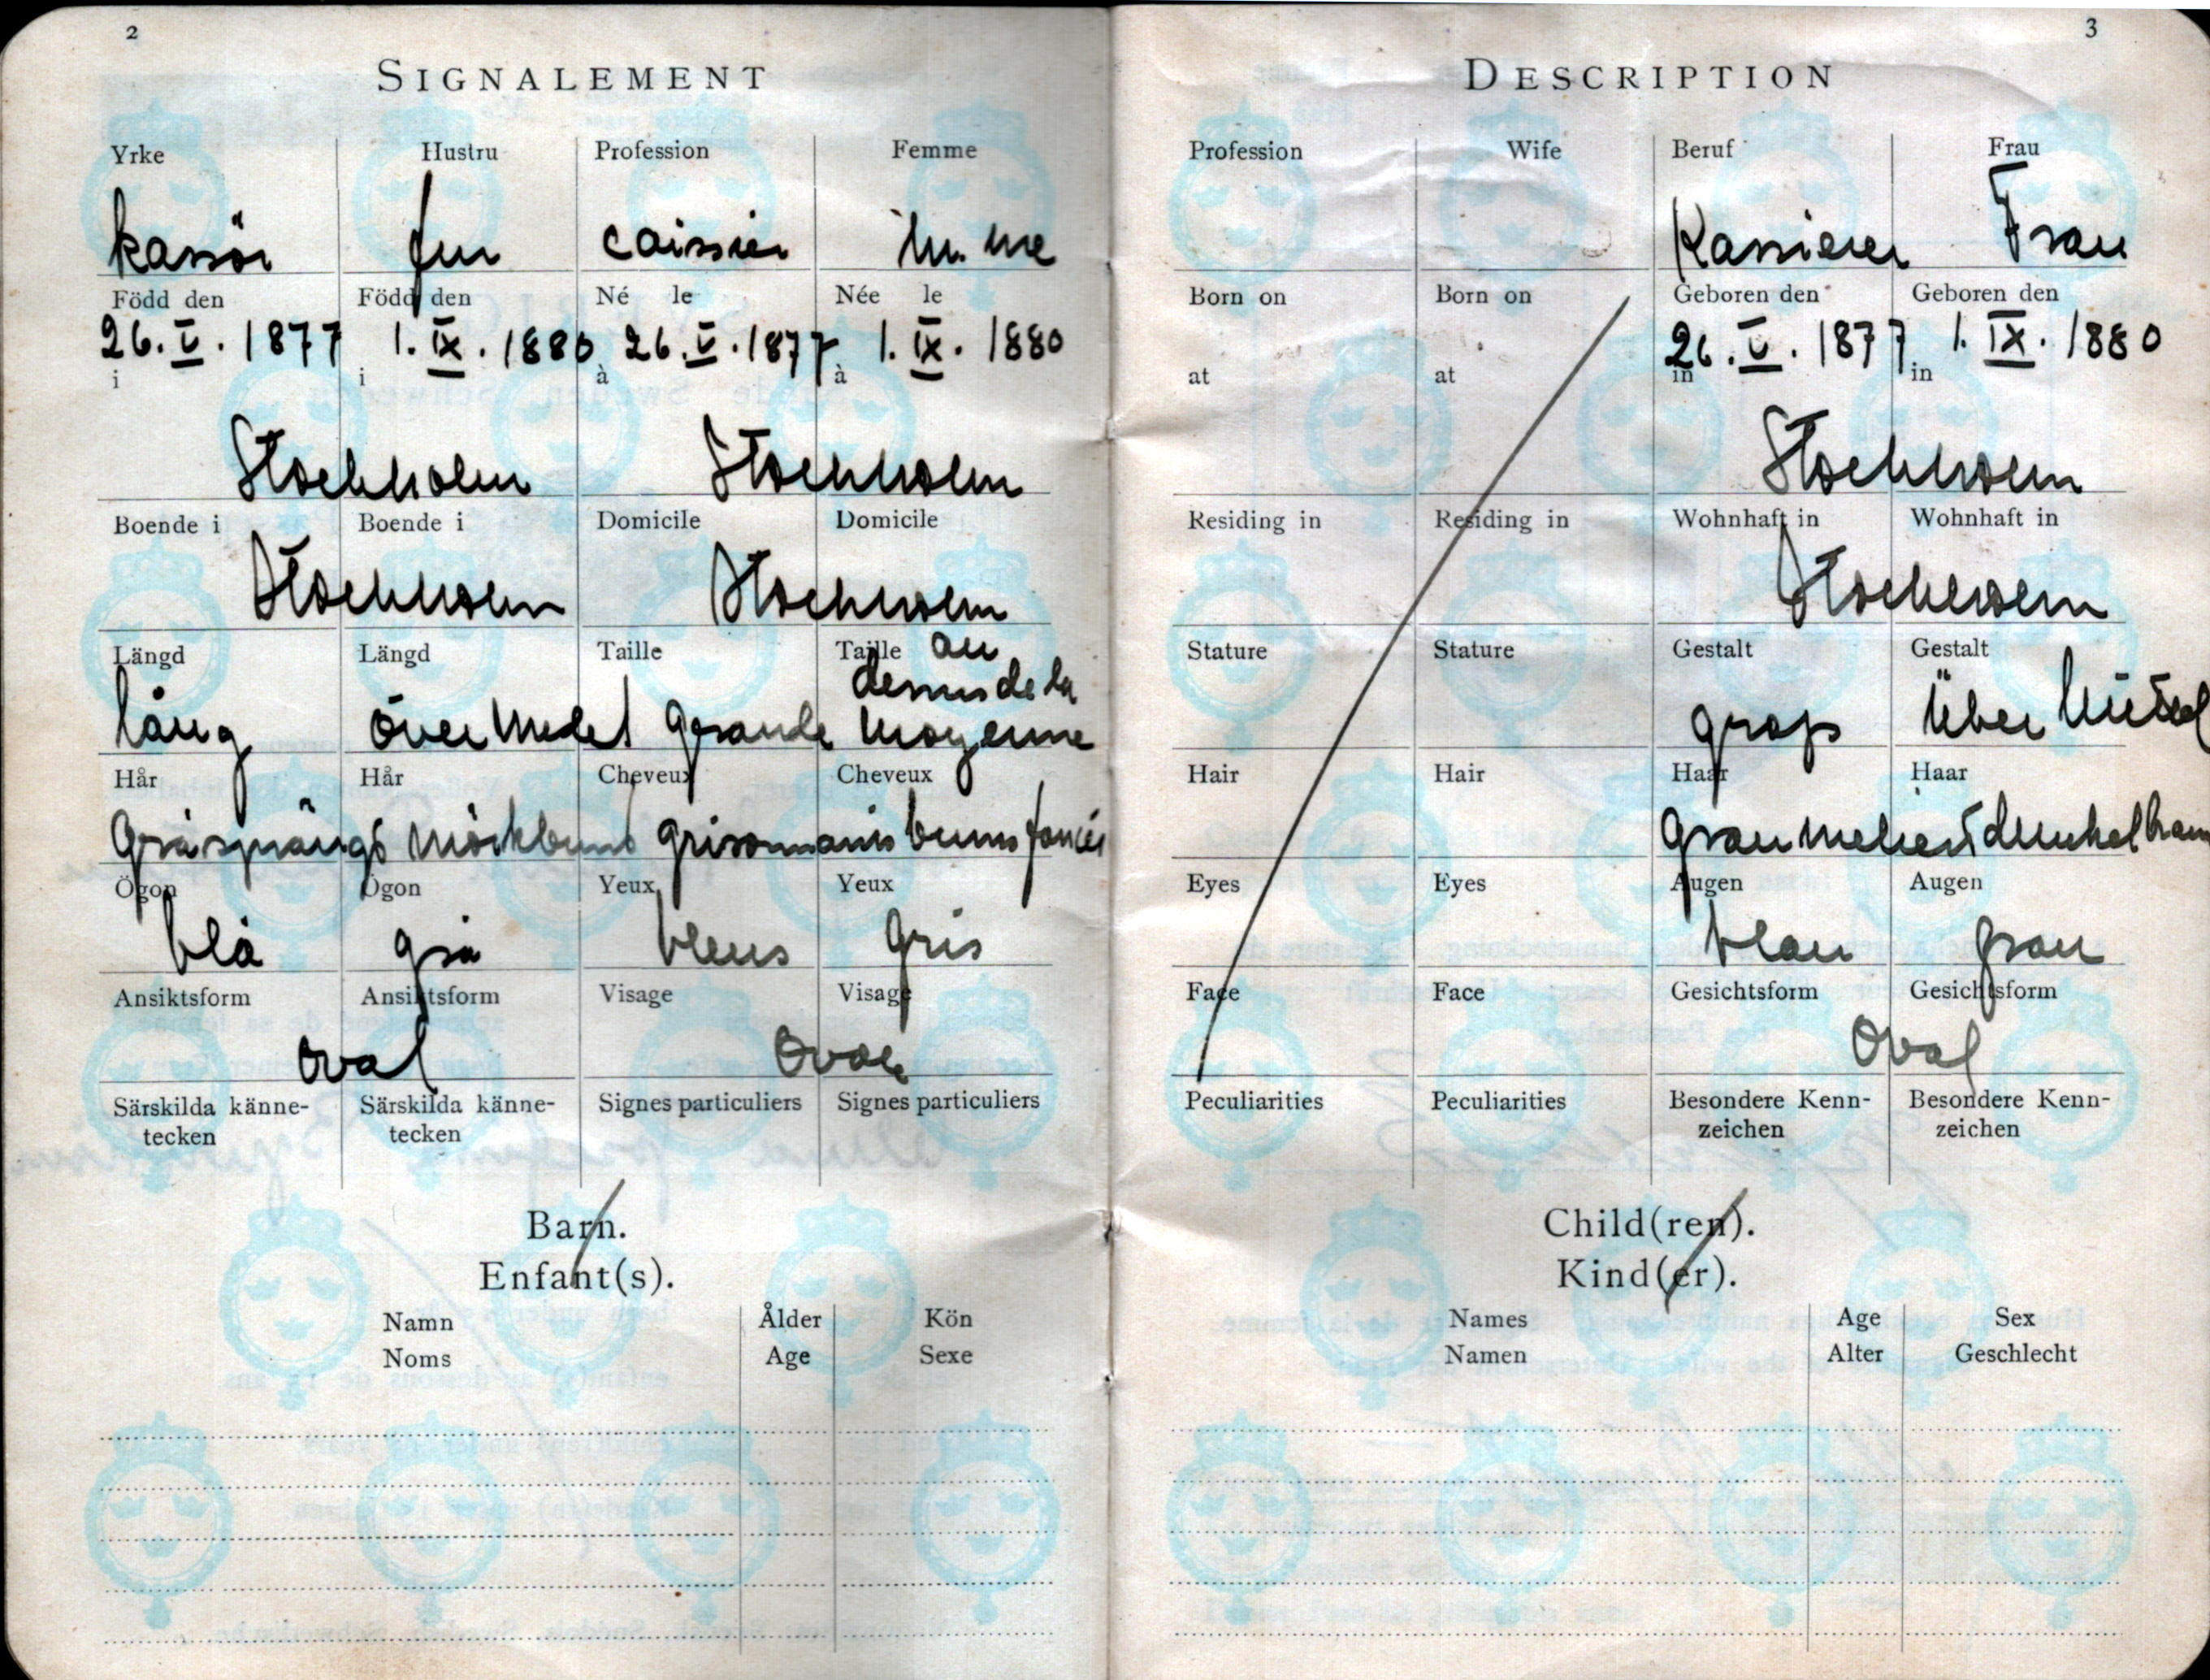 2
3
SIGNALEMENT
DESCRIPTION
Yrke Hustru Profession Femme
Profession Wife Beruf Frau
kassör fru caissier Mme
Kassierer Frau
Född den Född den Né le Née le
Born on Born on Geboren den Geboren den
26.V.1877 1.IX.1880 26.V.1877 1.IX.1880
26.V.1877 1.IX.1880
i i à à
at at in in
Stockholm Stockholm
Stockholm
Boende i Boende i Domicile Domicile
Residing in Residing in Wohnhaft in Wohnhaft in
Stockholm Stockholm
Stockholm
Längd Längd Taille Taille
Stature Stature Gestalt Gestalt
au
dessus de la
lång över medel grande moyenne
gross über Mittel
Hår Hår Cheveux Cheveux
Hair Hair Haar Haar
gråsprängt mörkbrunt grisonnants bruns foncés
graumeliert dunkelbraun
Ögon Ögon Yeux Yeux
Eyes Eyes Augen Augen
blå grå bleus gris
blau grau
Ansiktsform Ansiktsform Visage Visage
Face Face Gesichtsform Gesichtsform
oval ovale
oval
Särskilda känne-
tecken
Särskilda känne-
tecken
Signes particuliers Signes particuliers
Peculiarities Peculiarities
Besondere Kenn-
zeichen
Besondere Kenn-
zeichen
Barn.
Enfant(s).
Child(ren).
Kind(er).
Namn Ålder Kön
Noms Age Sexe
Names Age Sex
Namen Alter Geschlecht